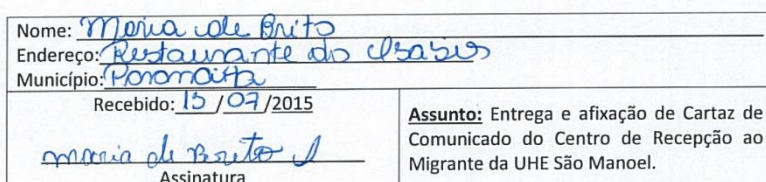 Nome: Maria de Brito
Endereço: Restaurante do
Município: Paranaita
Recebido: 15/07/2015
maria de Brito
Assinatura
Assunto: Entrega e afixação de Cartaz de
Comunicado do Centro de Recepção ao
Migrante da UHE São Manoel.